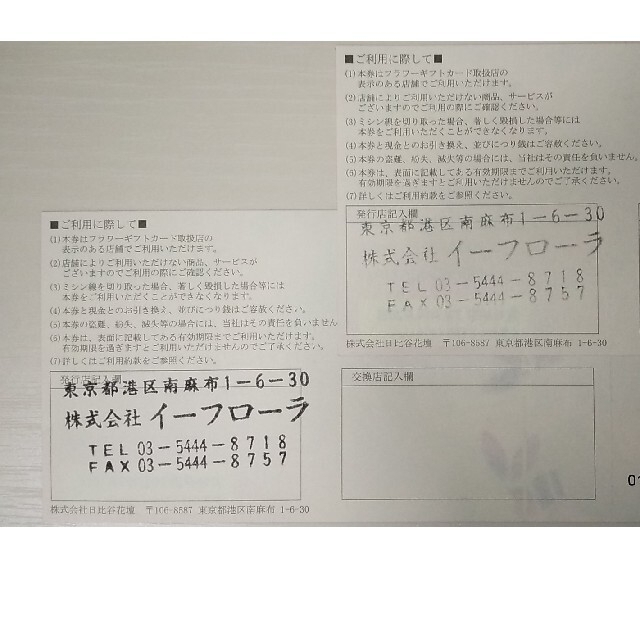 ■ご利用に際して■
(1)本券はフラワーギフトカード取扱店の
表示のある店舗でご利用いただけます。
(2)店舗によりご利用いただけない商品、サービスが
ございますのでご利用の際にご確認ください。
(3)ミシン線を切り取った場合、著しく毀損した場合等には
本券をご利用いただくことができなくなります。
(4)本券と現金とのお引き換え、並びにつり銭はご容赦ください。
(5)本券の盗難、紛失、滅失等の場合には、当社はその責任を負いません。
(6)本券は、表面に記載してある有効期限までご利用いただけます。
有効期限を過ぎますとご利用いただけませんのでご了承ください。
(7)詳しくはご利用約款をご参照ください。
発行店記入欄
東京都港区南麻布1-6-30
株式会社イーフローラ
TEL 03-5444-8718
FAX 03-5444-8757
株式会社日比谷花壇 〒106-8587 東京都港区南麻布 1-6-30
交換店記入欄
01
■ご利用に際して■
(1)本券はフラワーギフトカード取扱店の
表示のある店舗でご利用いただけます。
(2)店舗によりご利用いただけない商品、サービスが
ございますのでご利用の際にご確認ください。
(3)ミシン線を切り取った場合、著しく毀損した場合等には
本券をご利用いただくことができなくなります。
(4)本券と現金とのお引き換え、並びにつり銭はご容赦ください。
(5)本券の盗難、紛失、滅失等の場合には、当社はその責任を負いません
(6)本券は、表面に記載してある有効期限までご利用いただけます。
有効期限を過ぎますとご利用いただけませんのでご了承ください。
(7)詳しくはご利用約款をご参照ください。
発行店記入欄
東京都港区南麻布1-6-30
株式会社イーフローラ
TEL 03-5444-8718
FAX 03-5444-8757
株式会社日比谷花壇 〒106-8587 東京都港区南麻布 1-6-30